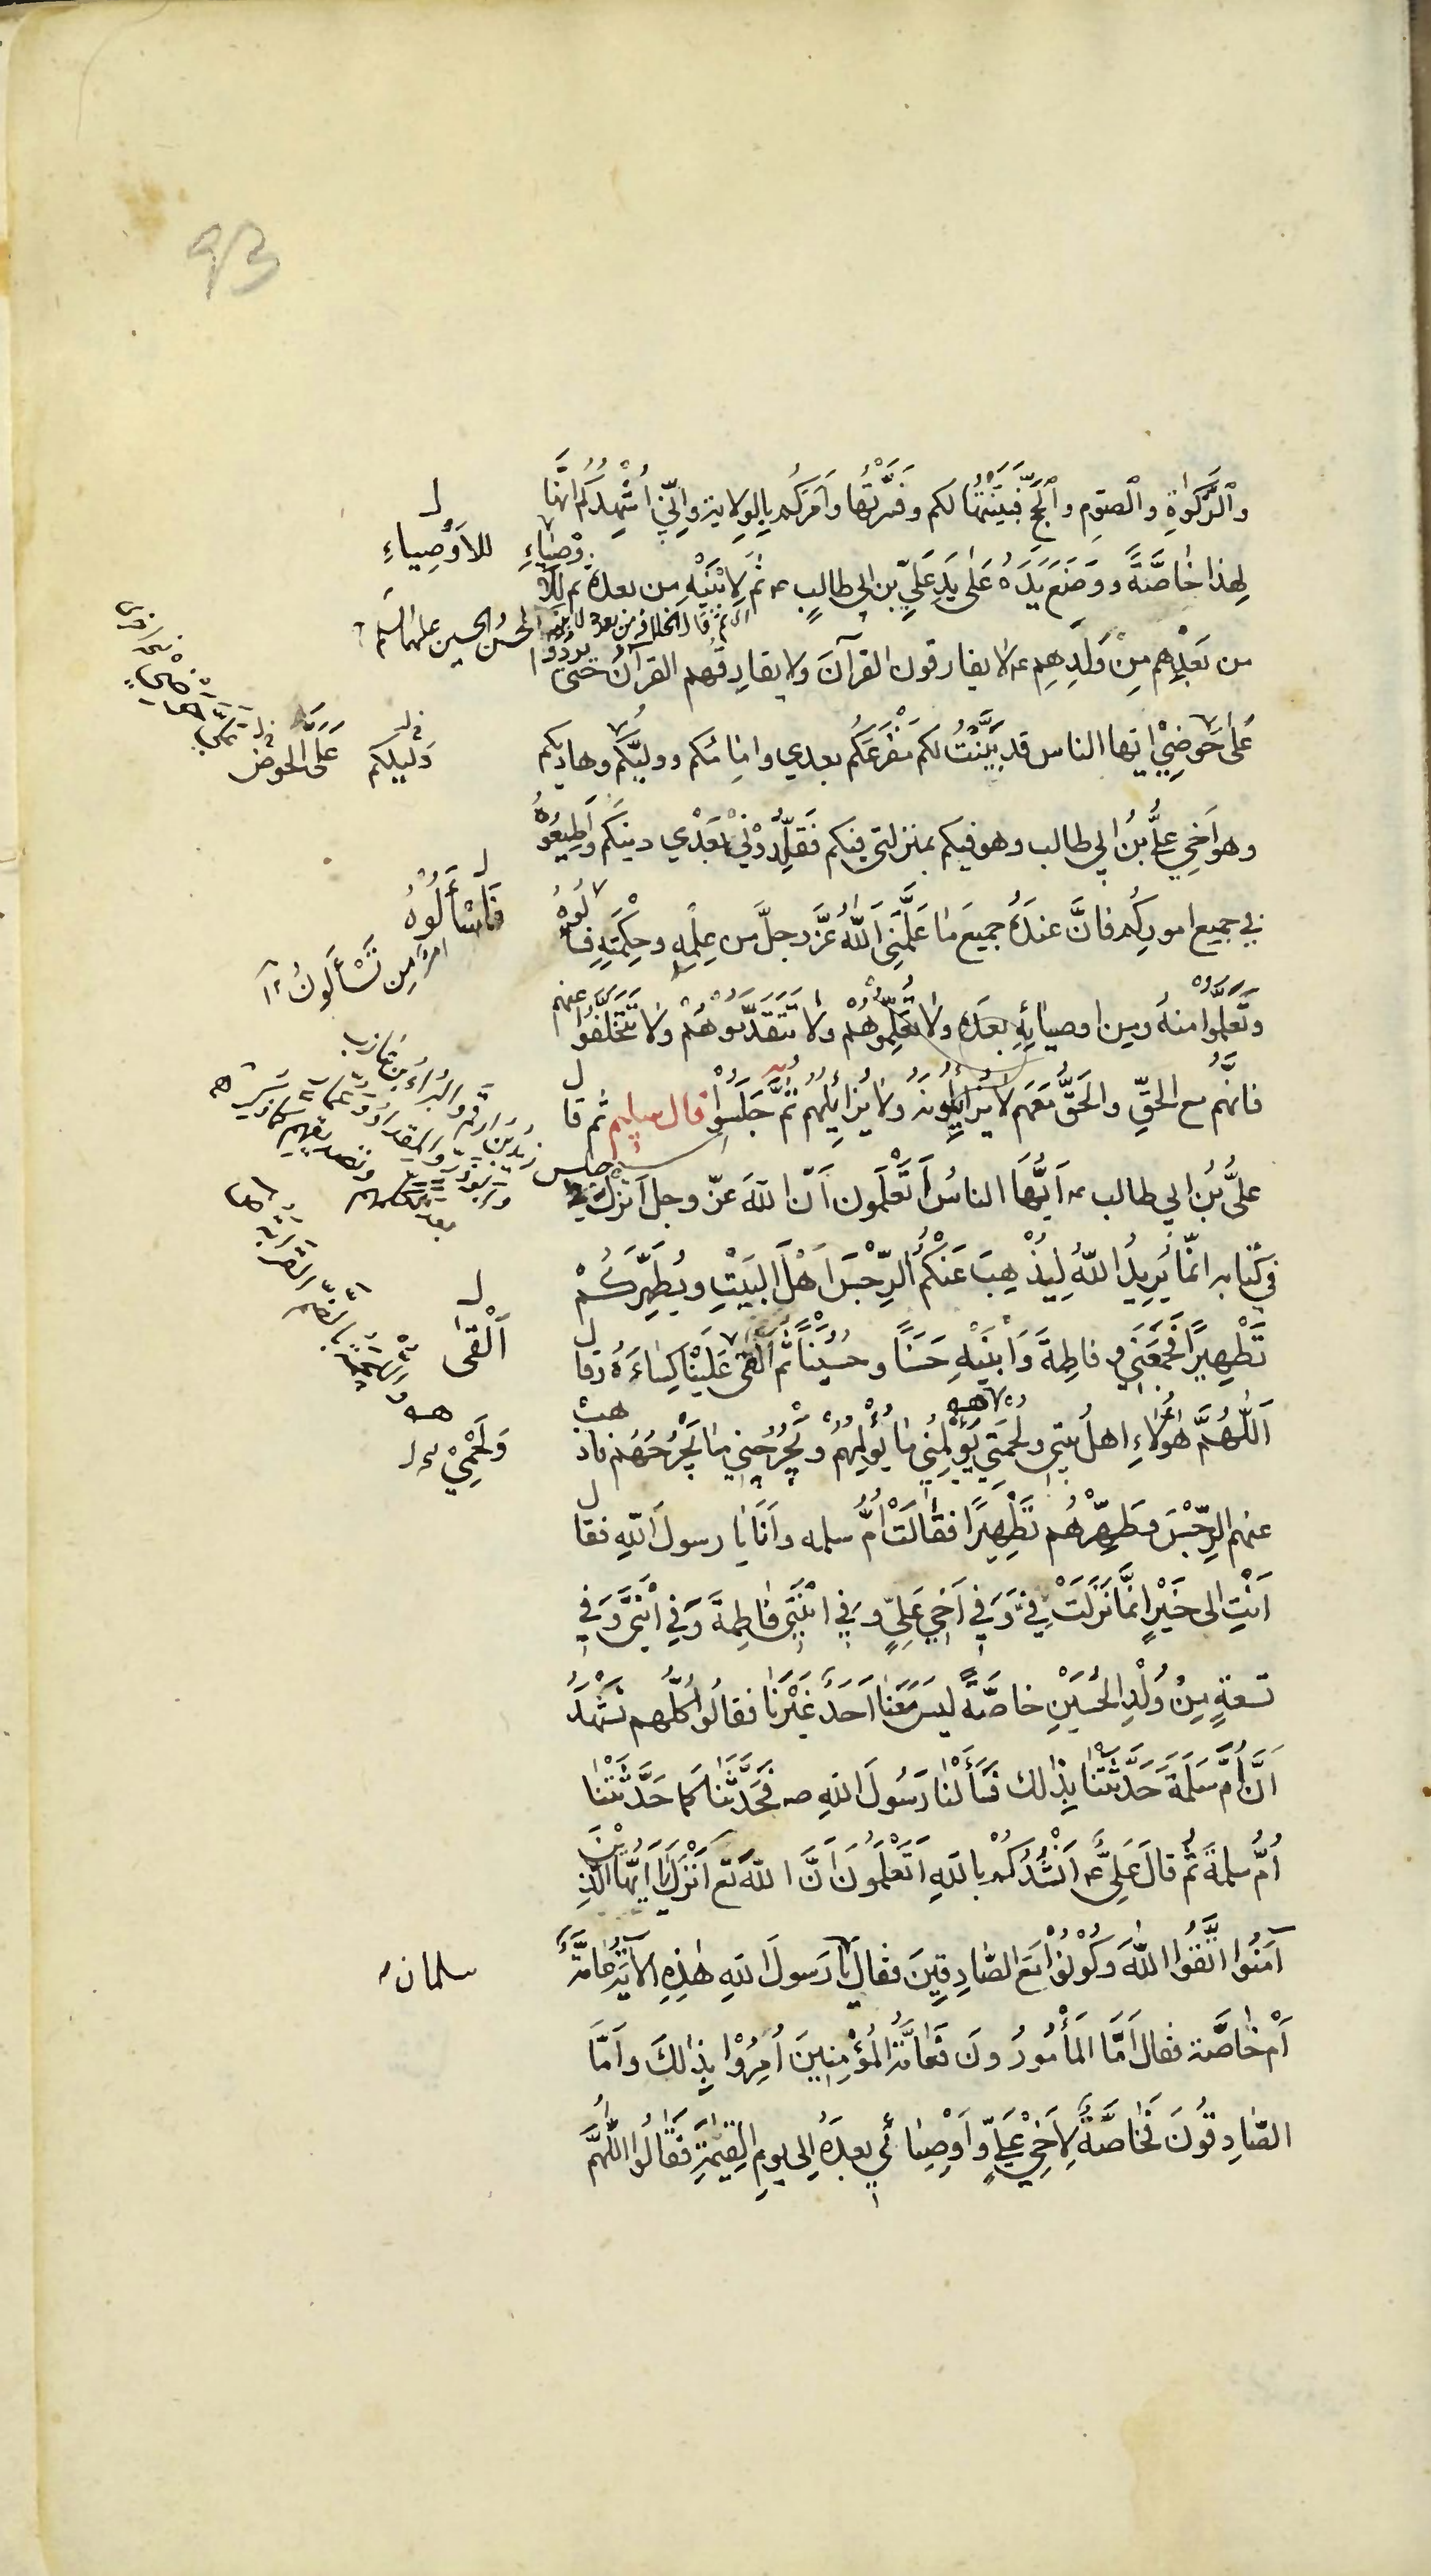 93
وَالزَّكوٰةِ وَالصّوْمِ وَالْحَجِّ فَبَيَّنْتُهَا لكم وفَسَّرْتُها وَاَمَرَكُم بِالْوِلايَةِ وَاِنِّي اُشْهِدُكُم اَنَّها
لِهذا خاصَّةً ووَضَعَ يَدَهُ عَلى يَدِ عَلِيِّ بْنِ ابى طالبٍ ع ثُمَّ لِابْنَيْهِ من بعده ثم للاَوْصِيٰاءِ
للاَوْصِياءِ
من بَعْدِهِم مِنْ وَلَدِهِم ع لا يفارقون القرآنَ ولا يفارِقُهم القرآنُ حَتّى يردوا
عَلى حَوضِيْ ايّها الناس قد بَيَّنْتُ لكم مَفْزَعَكُم بعدي وامامَكُم ووليَّكُم وهاديكم
دَليلكم
عَلَى الحَوض
وهو اَخي عليُّ بنُ ابي طالب وهو فيكم بمنزلتى فيكم فَقَلِّدُوْهُ دينَكُم وَاَطِيعُوهُ
في جميع اموركُم فانَّ عندَهُ جميعَ ما عَلَّمَنِى اللّٰهُ عَزَّ وجلَّ من عِلْمِهِ وحِكْمَتِهِ فسألُوهُ
فَاسْأَلُوهُ
امرٌ مِن تَسْأَلونُ
وتَعَلَّمُوْا منهُ ومِن اوصيائِهِ بَعدَهُ ولا تُعَلِّمُوْهُمْ ولا تَتَقَدَّمُوْهُمْ ولا تَتَخَلَّفُوْا عنهم
فانَّهُم مع الحقِّ والحَقُّ مَعَهم لا يُزايِلُونَهُ ولا يُزايِلُهُمْ ثُمَّ جَلَسُوْا قال سليم ثم قال
جلس
عليُّ بْنُ ابي طالب ع اَيُّهَا الناسُ أَتَعْلَمُون اَنّ اللهَ عزّ وجل اَنْزَلَ
فى كِتابه انّما يُريدُ اللّٰهُ لِيُذْهِبَ عَنْكُمُ الرِّجْسَ اَهْلَ الْبَيْتِ ويُطَهِّرَكُمْ
تَطْهِيرًا فَجَمَعَنِي وفاطِمَةَ وَابْنَيْهِ حَسَنًا وحُسَيْنًا ثُمَّ اَلْقى عَلَيْنا كِساءَهُ وقال
اَلْقى
اَللّٰهُمَّ هؤُلاءِ اهلُ بيتى ولُحْمَتِي يُؤْلِمُنِي ما يُؤْلِمُهُمْ ويَجْرُحُنِي ما يَجْرُحُهُمْ فاذهب
وَلَحْمِيْ
عنهم الرِّجْسَ وطَهِّرْهُم تَطْهِيرًا فقالَتْ اُمُّ سلمه واَنَا يا رسولَ اللّهِ فقال
اَنْتِ الى خَيْرٍ انّما نَزَلَتْ فِيَّ وَفي اَخي عَلِيٍّ وفي ابْنَتي فاطِمةَ وَفي ابْنَيَّ وَفي
تسعةٍ مِنْ وُلْدِ الْحُسَيْنِ خاصَّةً لَيسَ مَعَنا اَحَدٌ غَيْرُنا فقالُوا كُلُّهم نَشْهَدُ
اَنَّ اُمَّ سَلَمَةَ حَدَّثَتْنا بِذٰلك فَسَأَلْنا رَسُولَ اللهِ ص فَحَدَّثَنا كما حَدَّثَتْنا
اُمُّ سلمةَ ثُمَّ قالَ عَلِيٌّ ع اَنْشُدُكُمْ باللهِ اَتَعْلَمُونَ اَنَّ اللّهَ تع اَنْزَلَ يا اَيُّهَا الّذِيْنَ
آمَنُوا اتَّقُوا اللّٰهَ وَكُوْنُوْا مَعَ الصّادِقِينَ فقال يا رَسولَ اللهِ هٰذِهِ الآيَةُ عامَّةٌ
سلمان
اَمْ خاصَّة فقال اَمَّا الْمَأْمُورُونَ فَعامَّةُ الْمُؤْمِنِينَ اُمِرُوْا بِذٰلكَ واَمَّا
الصّادِقُونَ فَخاصَّةٌ لِاَخِيْ عَلِيٍّ وَاَوْصِيائي بعدَهُ اِلى يومِ الْقِيٰمَةِ فَقالُوا اللّٰهُمَّ